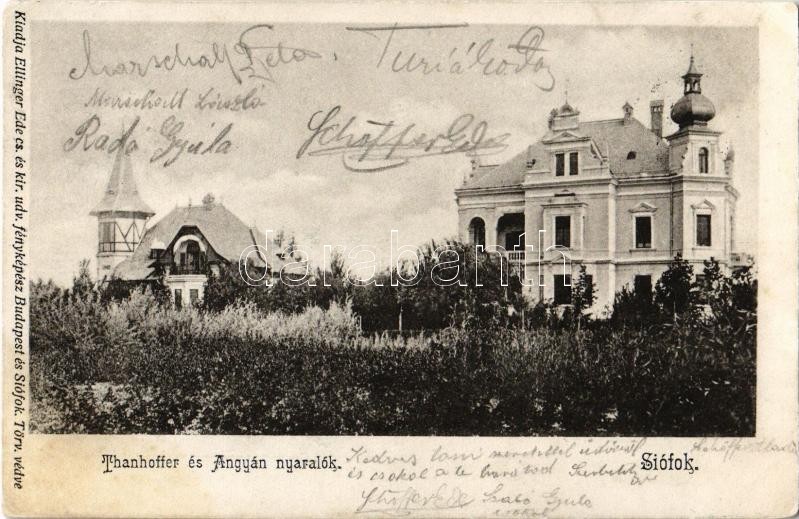 Kiadja Ellinger Ede cs. és kir. udv. fényképész Budapest és Siófok. Törv. védve
Marschall Béla.
Turiák Ödön
Marschall László
Radó Gyula
Schöffer Ede
darabanth
Thanhoffer és Angyán nyaralók.
Siófok.
Kedves szeretettel üdvözöl
és csókol a te barátod
Schöffer Ede
Szabó Gyula